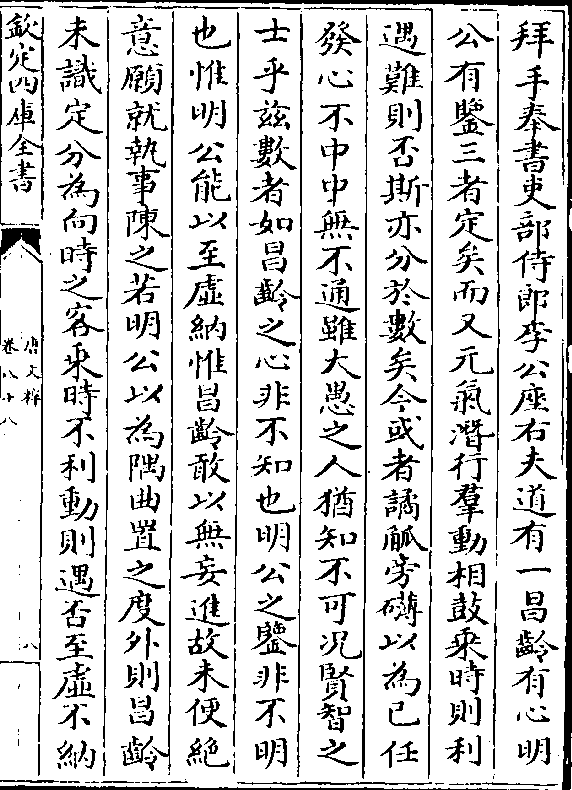 拜手奉書吏部侍郎李公座右夫道有一昌齡有心明
公有鑒三者定矣而又元氣潛行羣動相鼓乘時則利
遇難則否斯亦分於數矣今或者譎觚旁礴以為己任
發心不中中無不通雖大愚之人猶知不可况賢智之
士乎兹數者如昌齡之心非不知也明公之鑒非不明
也惟明公能以至虛納惟昌齡敢以無妄進故未便絶
意願就執事陳之若明公以為隅曲置之度外則昌齡
未識定分為向時之客乘時不利動則遇否至虛不納
欽定四庫全書
唐文粹
卷八十八
八